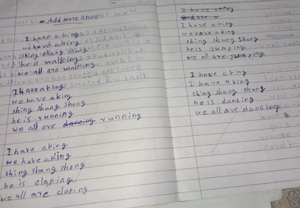 Add more lines
I have a king
we have a king
shing shang shong
he is walking
we all are walking
I have a king
we have a king
shing shang shong
he is running
we all are running
I have a king
we have a king
shing shang shong
he is claping
we all are claping
I have a king
we have a king
shing shang shong
he is jumping
we all are jumping
I have a king
I have a king
shing shang shong
he is dancing
we all are dancing